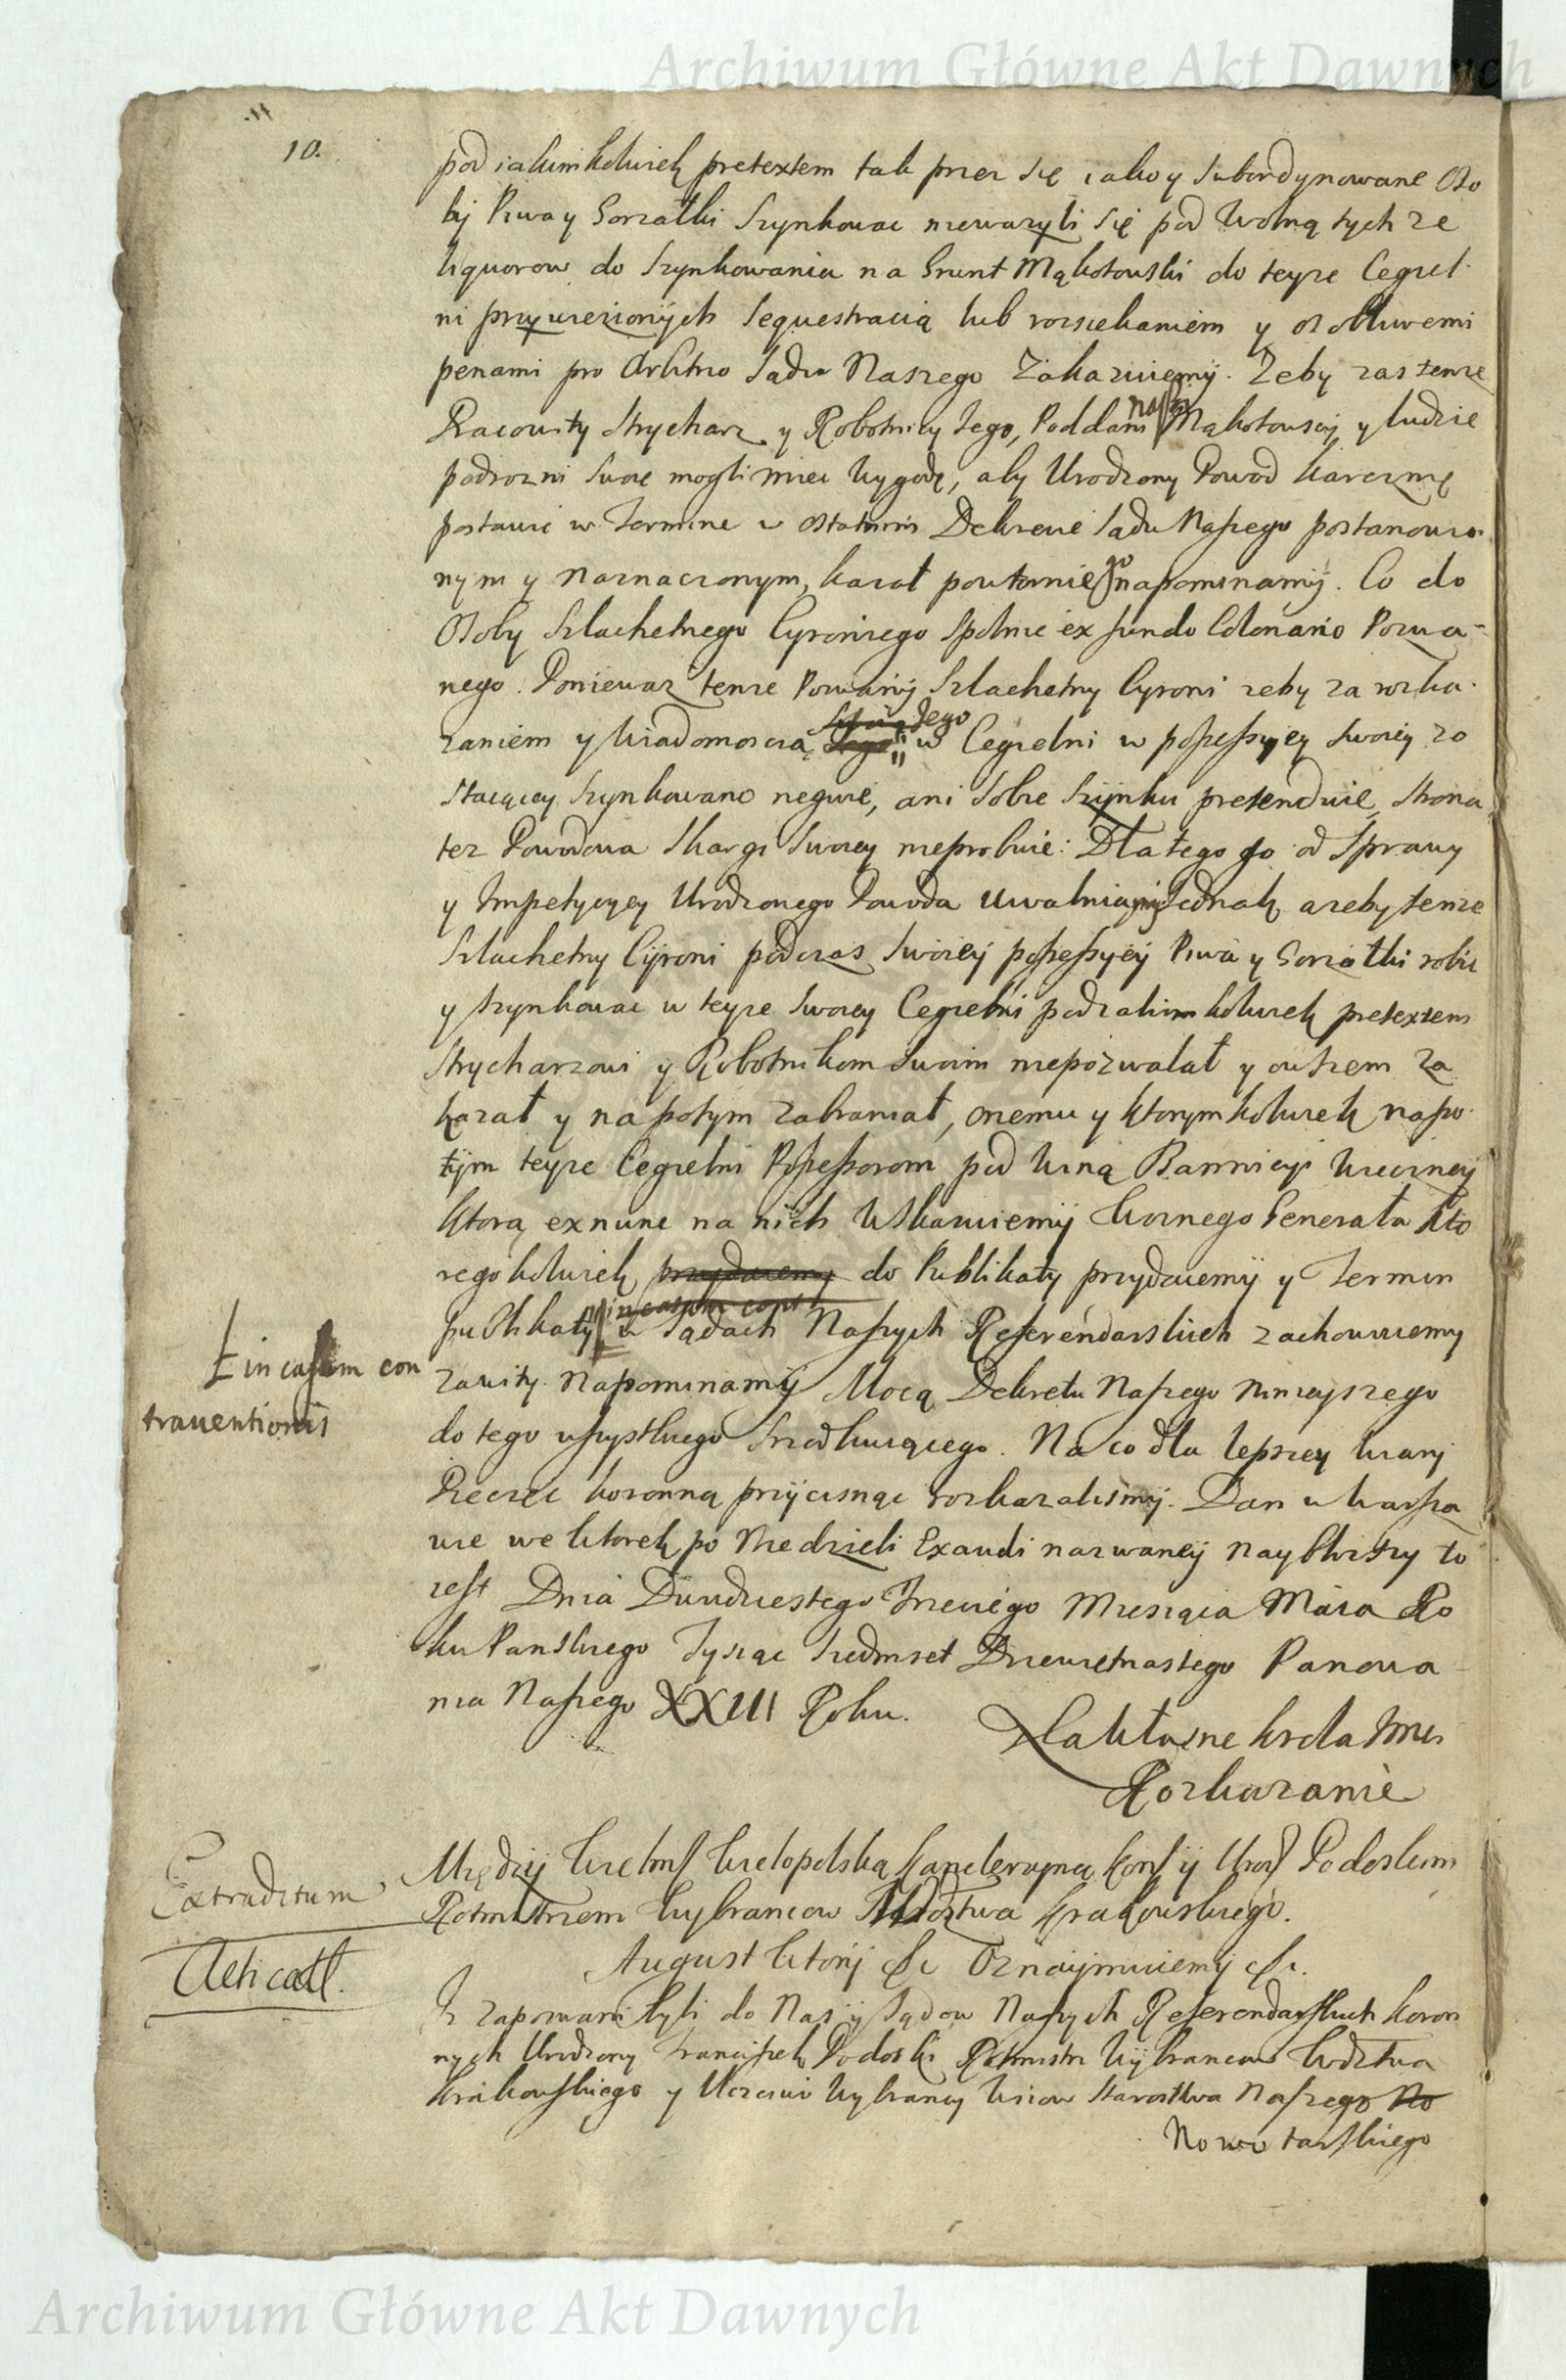 Archiwum Główne Akt Dawnych
10.
pod iakimkolwiek pretextem tak przez się iako y subordynowane Oso
by Piwa y Gorzałki Szynkowac niewazyli się pod Wolną tych ze
liquorow do Szynkowania na Grunt Mąkotowski do teyze Cegiel
ni przywiezionÿch Sequestracią lub rozsiekaniem y osobliwemi
penami pro Arbitrio Sądu Naszego Zakazuiemÿ. Zeby zas tenze
Pracowity Strycharz y Robotnicy Jego, Poddani Nasi Mąkotowscÿ y ludzie
podrozni swoię mogli miec Wygodę, aby Urodzony Powod karczmę
postawic w Terminie w ostatnim Dekrecie Sądu Naszego postanowio
nym y naznaczonym, kazał powtornie go napominamÿ. Co do
Osoby Szlachetnego Cyroniego Spolnie ex fundo Colonario Pozwa-
nego. Poniewaz tenze Pozwanÿ Szlachetny Cyroni zeby za rozka
zaniem y Wiadomoscią Jego w Cegielni w possessyey swoiey zo
staiącey Szynkowano neguie, ani sobie Szÿnku pretenduie, Strona
tez Powodowa Skargi Swoiey nieprobuie: Dlatego go od Sprawy
y Impetycyey Urodzonego Powoda Uwalniamÿ Jednak azeby tenze
Szlachetny Cÿroni podczas swoieÿ possessyeÿ Piwa y Gorzałki robic
y Szynkowac w teyze swoiey Cegielni pod iakimkolwiek pretextem
Strycharzowi ÿ Robotnikom swoim niepozwalał y owszem za
kazał y napotym zabraniał, onemu y ktorymkolwiek napo
tÿm teyze Cegielni Possessorom pod Winą Banniciÿ Wieczney
ktorą exnunc na nich Wskazuiemÿ Woznego Generała kto
regokolwiek przydaiemy do Publikaty przydaiemÿ y Termin
publikaty in casum cont w Sądach Naszych Referendarskich zachowuiemy
Ł in casum con
traventionis
zawity. Napominamÿ Mocą Dekretu Naszego ninieyszego
do tego wszystkiego Srzodkuiącego. Na co dla lepszey wiarÿ
Pieczęc koronną przÿcisnąc rozkazalismÿ. Dan w Warsza
wie we Wtorek po Niedzieli Exaudi nazwaneÿ naybliszy to
iest Dnia Dwudziestego Trzeciego Miesiąca Maia Ro
ku Panskiego Tysiąc Siedmset Dziewietnastego Panowa
nia Naszego XXIII Roku.
Na Własne krola Jmci
Rozkazanie
Extraditum
Aeticatt.
Międzÿ Wielm Wielopolską kanclerzyną kor ÿ Urod Podoskim
Rotmistrzem Wybrancow Wdztwa krakowskiego.
August Wtorÿ etc Oznaÿmuiemÿ etc.
Iz zapozwani byli do Nas ÿ Sądow Naszych Referendarskich koron
nych Urodzony Franciszek Podoski Rotmistrz Wÿbrancow Wdztwa
krakowskiego y Uczciwi Wybrancy Wsiow Starostwa Naszego No
Nowotarskiego
Archiwum Główne Akt Dawnych